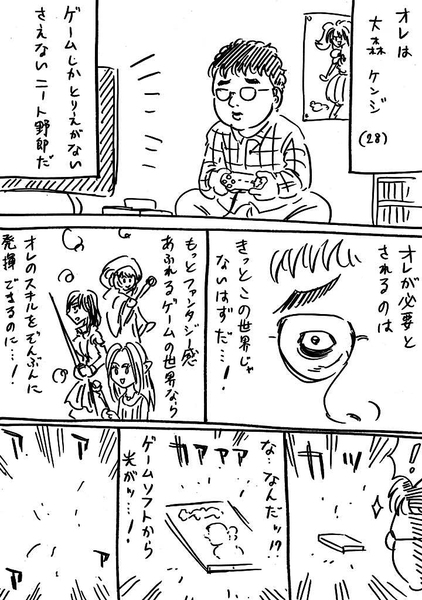 オレは
大森 ケンジ
(28)
ゲームしかとりえがない
さえないニート野郎だ
オレが必要と
されるのは
きっとこの世界じゃ
ないはずだ…!
もっとファンタジー感
あふれるゲームの世界なら
オレのスキルをぞんぶんに
発揮できるのに…!
!
カッ
な…なんだッ!?
カアアア
ゲームソフトから
光がッ…!
ア
ア
ア
ア